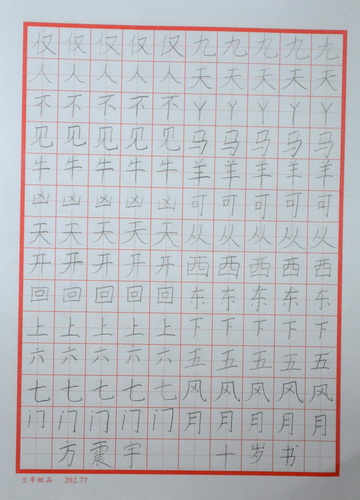 仅仅仅仅仅九九九九九
人人人人人天天天天天
不不不不不丫丫丫丫丫
见见见见见马马马马马
牛牛牛牛牛羊羊羊羊羊
凶凶凶凶凶可可可可可
天天天天天从从从从从
开开开开开西西西西西
回回回回回东东东东东
上上上上上下下下下下
六六六六六五五五五五
七七七七七风风风风风
门门门门门月月月月月
方震宇 十岁书
兰亭纸品 202.77